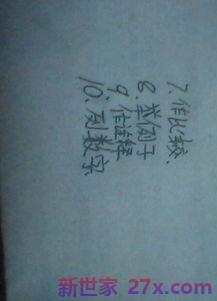 7.作比较、
8.举例子
9.作诠释
10.列数字
新世家 27x.com